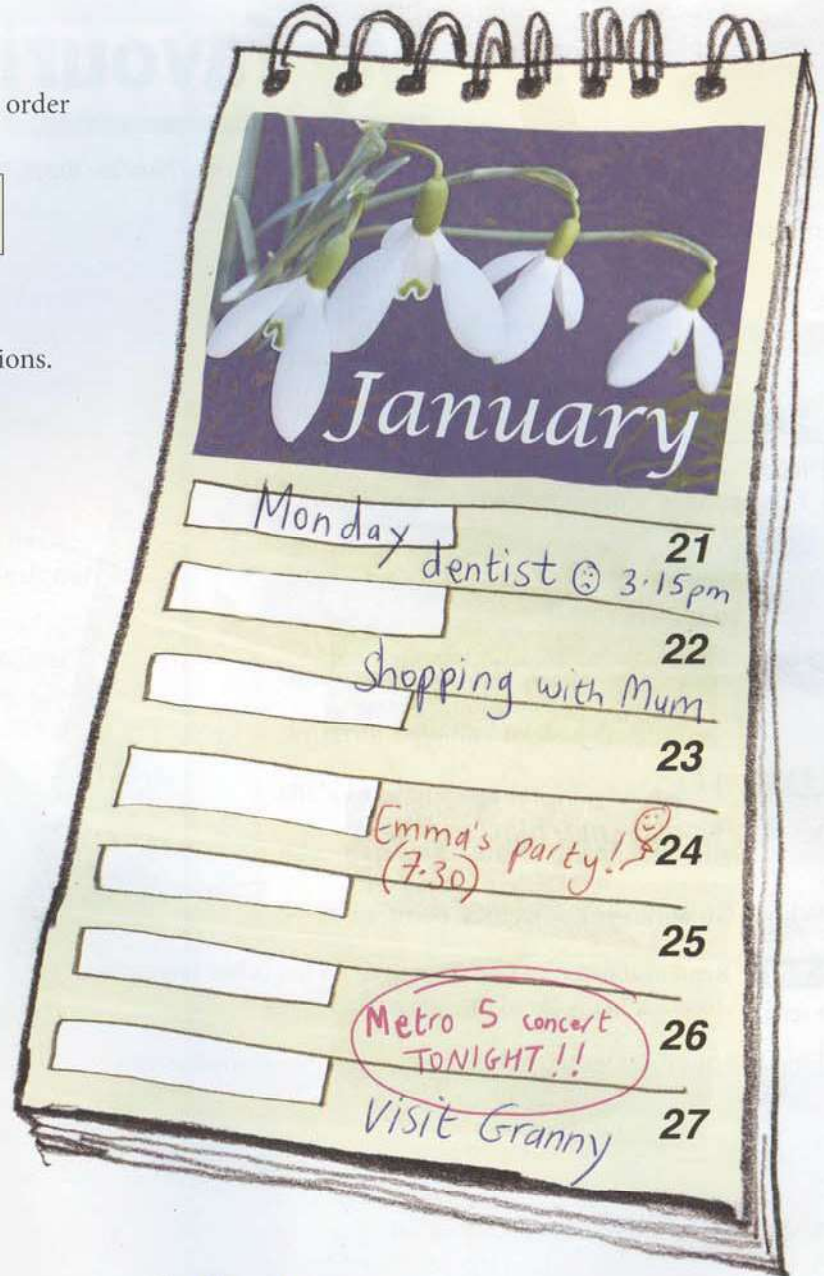 order
ions.
January
Monday
21
dentist 3.15pm
22
shopping with Mum
23
Emma's party! 24
(7.30)
25
Metro 5 concert 26
TONIGHT!!
Visit Granny 27